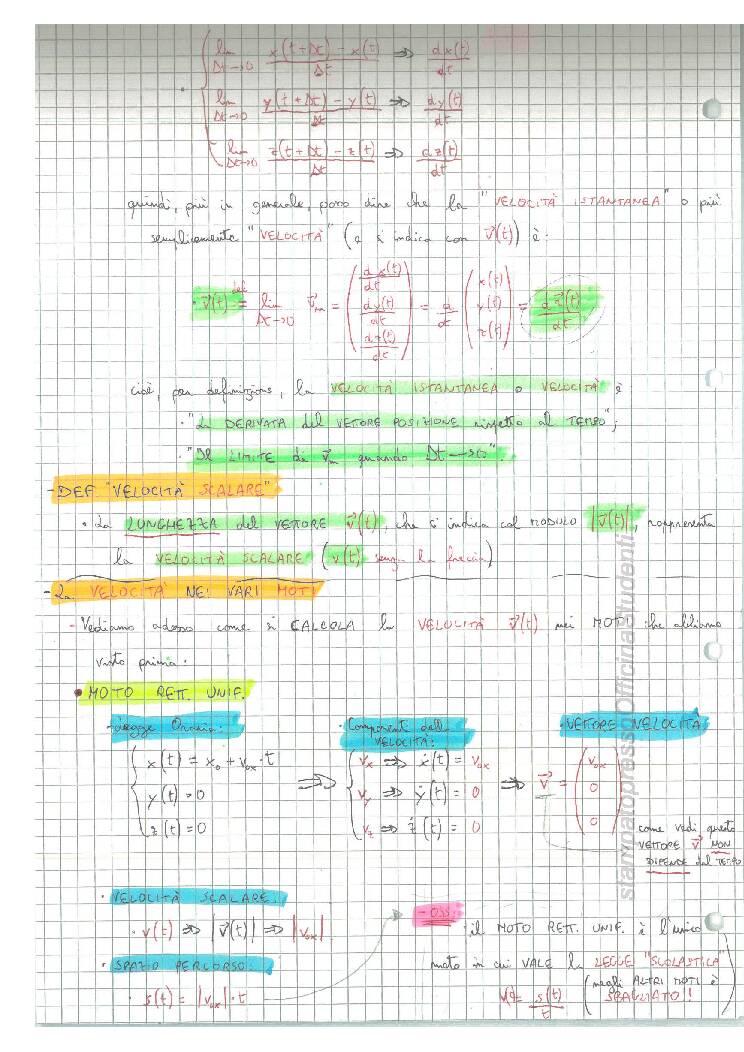 lim Δt→0 x(t+Δt) - x(t) / Δt ⇒ dx(t)/dt
lim Δt→0 y(t+Δt) - y(t) / Δt ⇒ dy(t)/dt
lim Δt→0 z(t+Δt) - z(t) / Δt ⇒ dz(t)/dt
quindi, più in generale, posso dire che la "VELOCITÀ ISTANTANEA" o più
semplicemente "VELOCITÀ" (e si indica con v⃗(t)) è:
· v⃗(t) =def lim Δt→0 v⃗m = (dx(t)/dt, dy(t)/dt, dz(t)/dt) = d/dt (x(t), y(t), z(t)) = d r⃗(t)/dt
cioè, per definizione, la VELOCITÀ ISTANTANEA o VELOCITÀ è
· "La DERIVATA del VETTORE POSIZIONE rispetto al TEMPO";
· "Il LIMITE di v⃗m quando Δt→0".
- DEF. "VELOCITÀ SCALARE"
· La LUNGHEZZA del VETTORE v⃗(t), che si indica col MODULO |v⃗(t)|, rappresenta
la VELOCITÀ SCALARE (v(t) senza la freccia)
- La VELOCITÀ NEI VARI MOTI
- Vediamo adesso come si CALCOLA la VELOCITÀ v⃗(t) nei MOTI che abbiamo
visto prima.
• MOTO RETT. UNIF.
· Legge Oraria: · Componenti della VELOCITÀ: · VETTORE VELOCITÀ
x(t) = x₀ + v₀ₓ·t ⇒ vx ⇒ ẋ(t) = v₀ₓ ⇒ v⃗ = (v₀ₓ
y(t) = 0 vy ⇒ ẏ(t) = 0 0
z(t) = 0 vz ⇒ ż(t) = 0 0)
come vedi questo
VETTORE v⃗ NON
DIPENDE dal TEMPO
· VELOCITÀ SCALARE:
· v(t) ⇒ |v⃗(t)| ⇒ |v₀ₓ|
· SPAZIO PERCORSO:
· s(t) = |v₀ₓ|·t
- OSS:
il MOTO RETT. UNIF. è l'unico
moto in cui VALE la LEGGE "SCOLASTICA"
v = s(t)/t (negli ALTRI MOTI è
SBAGLIATO!!)
stampato presso Officina Studenti